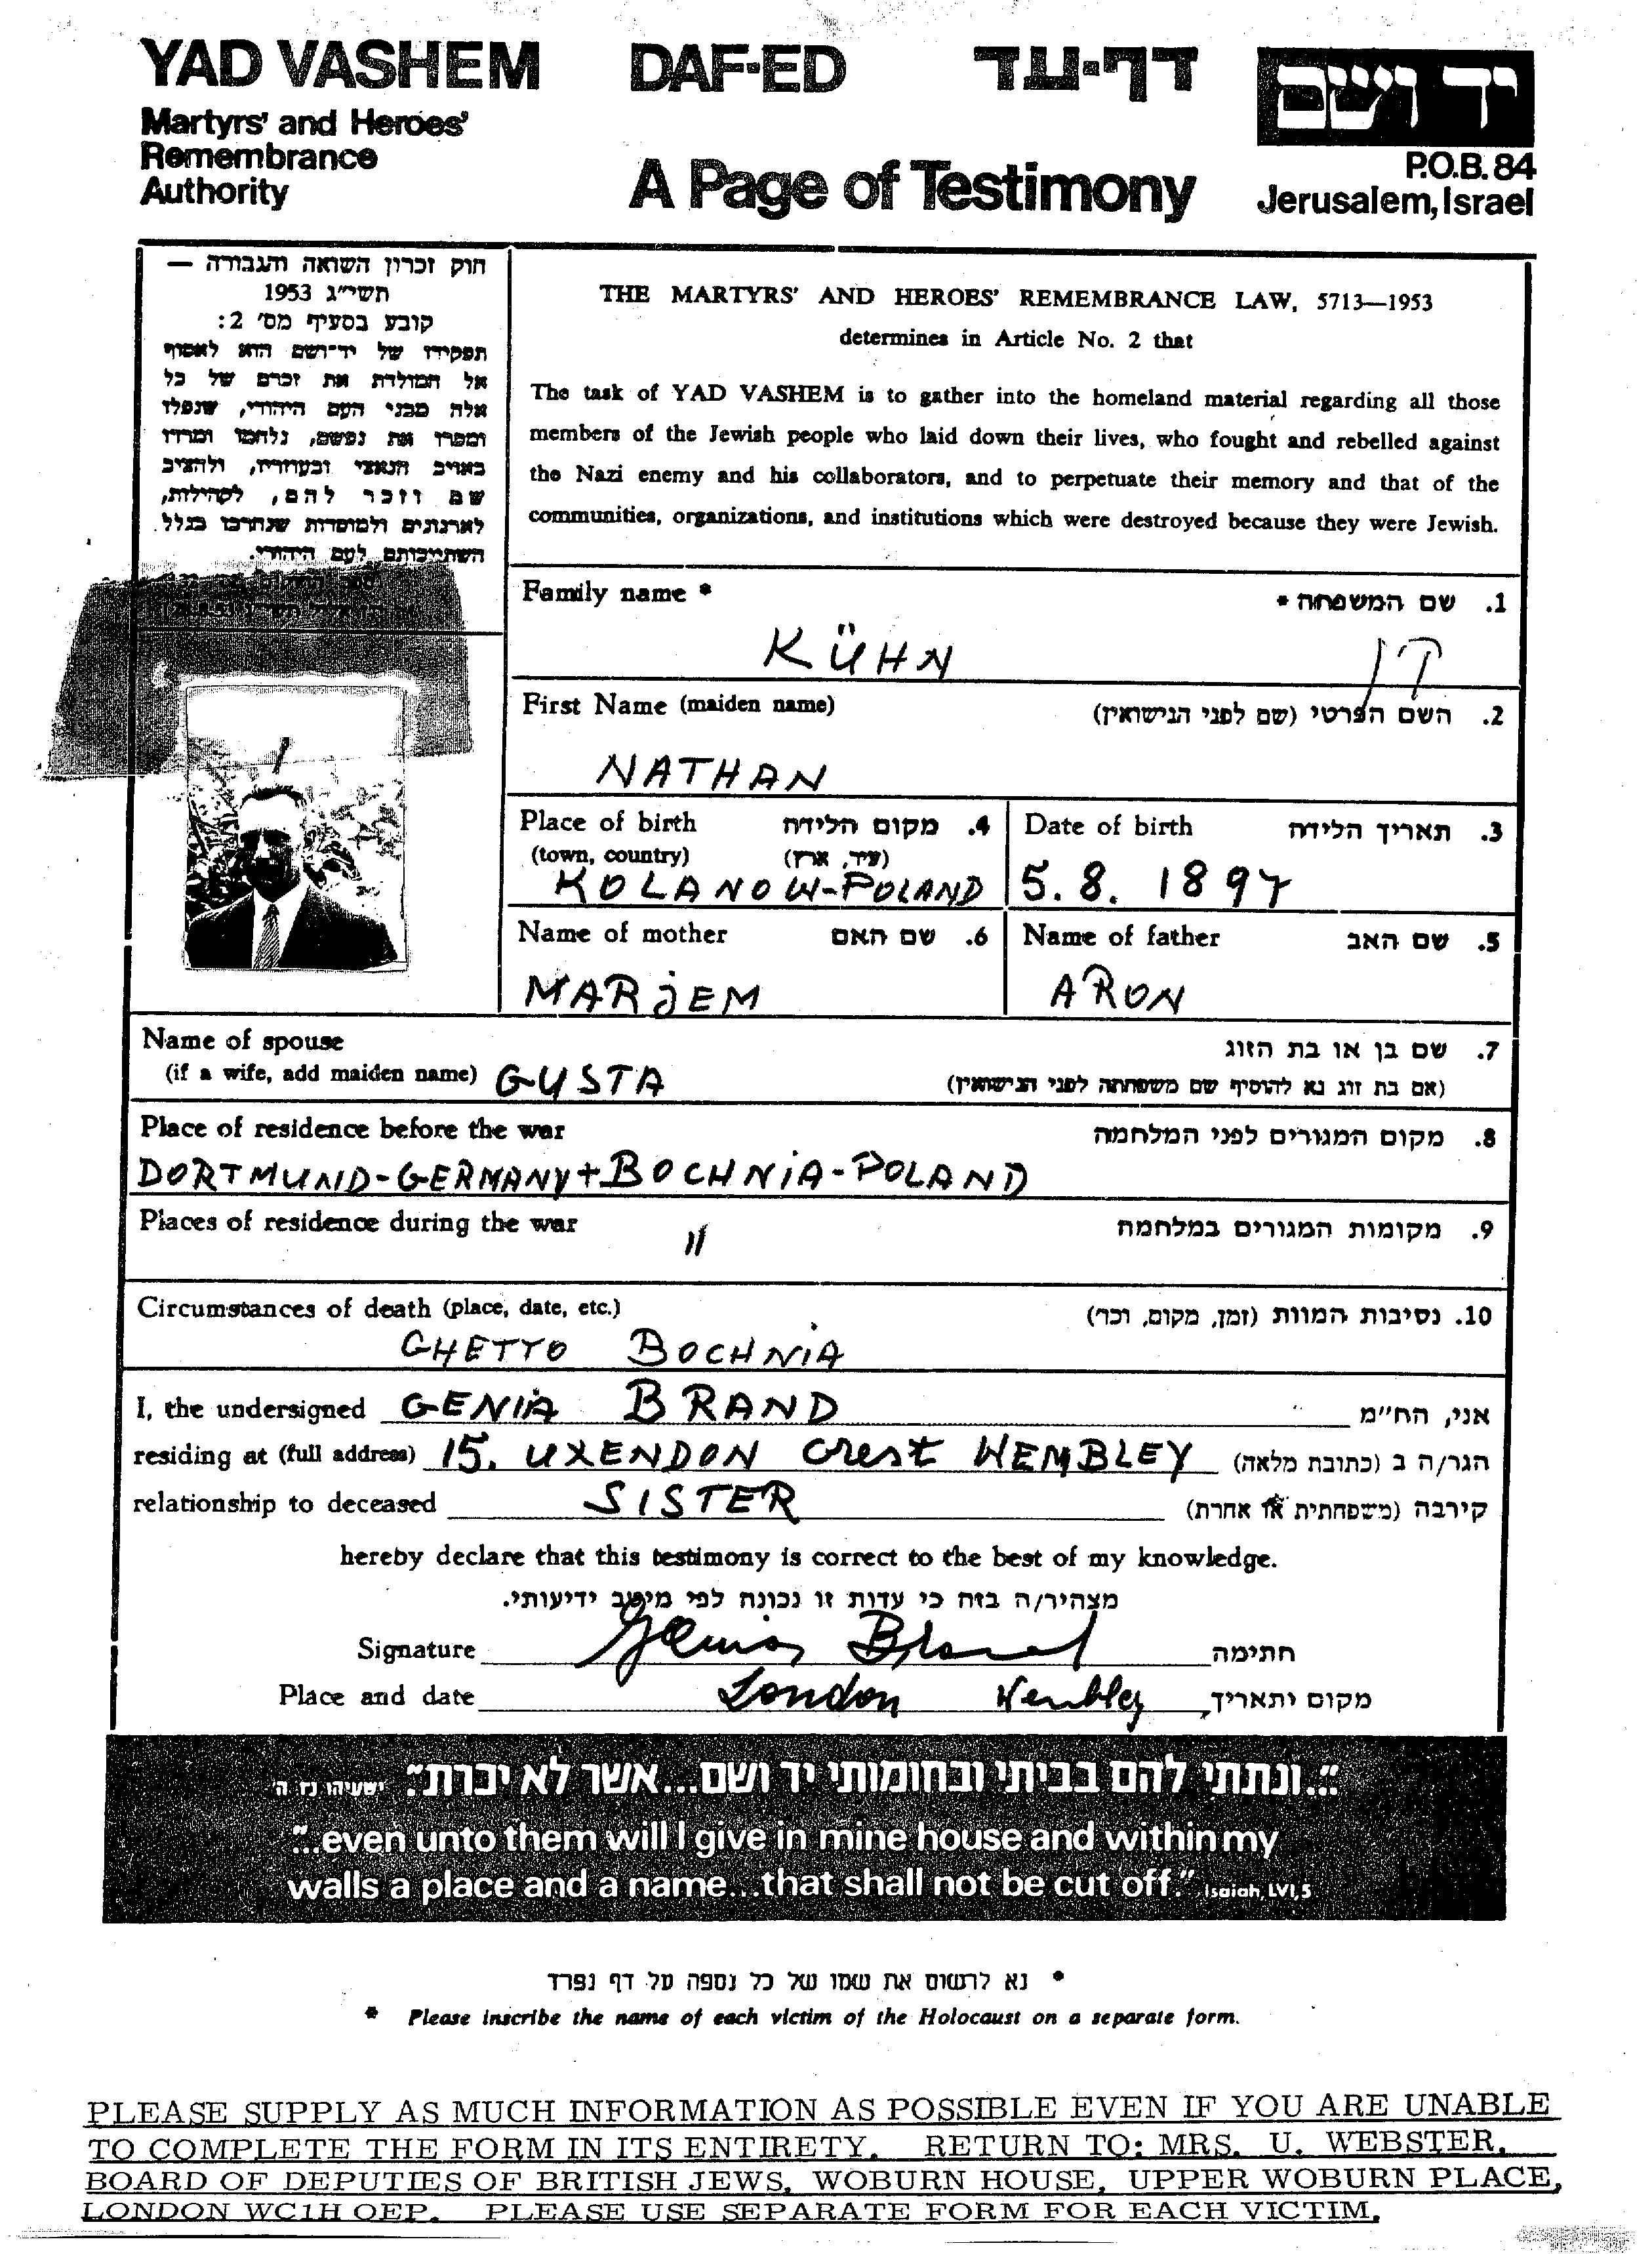 YAD VASHEM DAF-ED דף-עד יד ושם
Martyrs' and Heroes'
Remembrance
Authority
A Page of Testimony
P.O.B. 84
Jerusalem, Israel
חוק זכרון השואה והגבורה —
תשי"ג 1953
קובע בסעיף מס' 2:
תפקידו של יד־ושם הוא לאסוף
אל המולדת את זכרם של כל
אלה מבני העם היהודי, שנפלו
ומסרו את נפשם, נלחמו ומרדו
באויב הנאצי ובעוזריו, ולהציב
שם וזכר להם, לקהילות,
לארגונים ולמוסדות שנחרבו בגלל
השתייכותם לעם היהודי.
THE MARTYRS' AND HEROES' REMEMBRANCE LAW, 5713—1953
determines in Article No. 2 that
The task of YAD VASHEM is to gather into the homeland material regarding all those
members of the Jewish people who laid down their lives, who fought and rebelled against
the Nazi enemy and his collaborators, and to perpetuate their memory and that of the
communities, organizations, and institutions which were destroyed because they were Jewish.
Family name * 1. שם המשפחה *
KÜHN קן
First Name (maiden name) 2. השם הפרטי (שם לפני הנישואין)
NATHAN
Place of birth 4. מקום הלידה
(town, country) (עיר, ארץ)
KOLANOW-POLAND
Date of birth 3. תאריך הלידה
5.8. 1897
Name of mother 6. שם האם
MARJEM
Name of father 5. שם האב
ARON
Name of spouse 7. שם בן או בת הזוג
(if a wife, add maiden name) GUSTA (אם בת זוג נא להוסיף שם משפחתה לפני הנישואין)
Place of residence before the war 8. מקום המגורים לפני המלחמה
DORTMUND-GERMANY+BOCHNIA-POLAND
Places of residence during the war 9. מקומות המגורים במלחמה
"
Circumstances of death (place, date, etc.) 10. נסיבות המוות (זמן, מקום, וכו')
GHETTO BOCHNIA
I, the undersigned GENIA BRAND אני, הח"מ
residing at (full address) 15. UXENDON Crest WEMBLEY הגר/ה ב (כתובת מלאה)
relationship to deceased SISTER קירבה (משפחתית או אחרת)
hereby declare that this testimony is correct to the best of my knowledge.
מצהיר/ה בזה כי עדות זו נכונה לפי מיטב ידיעותי.
Signature Genia Brand חתימה
Place and date London Wembley מקום ותאריך
"...ונתתי להם בביתי ובחומותי יד ושם...אשר לא יכרת" ישעיהו נו ה
"...even unto them will I give in mine house and within my
walls a place and a name...that shall not be cut off." Isaiah, LVI, 5
* נא לרשום את שמו של כל נספה על דף נפרד
* Please inscribe the name of each victim of the Holocaust on a separate form.
PLEASE SUPPLY AS MUCH INFORMATION AS POSSIBLE EVEN IF YOU ARE UNABLE
TO COMPLETE THE FORM IN ITS ENTIRETY. RETURN TO: MRS. U. WEBSTER,
BOARD OF DEPUTIES OF BRITISH JEWS, WOBURN HOUSE, UPPER WOBURN PLACE,
LONDON WC1H OEP. PLEASE USE SEPARATE FORM FOR EACH VICTIM.